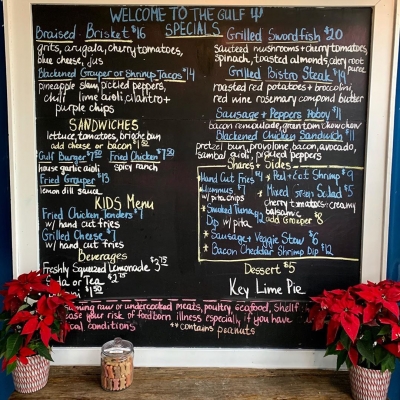 WELCOME TO THE GULF
SPECIALS
Braised Brisket $16
grits, arugala, cherry tomatoes,
blue cheese, jus
Blackened Grouper or Shrimp Tacos $14
pineapple slaw, pickled peppers,
chili lime aioli, cilantro +
purple chips
SANDWICHES
lettuce, tomatoes, bright bun
add cheese or bacon
Gulf Burger
house garlic aioli
Fried Chicken
spicy ranch
Fried Grouper $13
lemon dill sauce
KIDS Menu
Fried Chicken Tenders $7
w/ hand cut fries
Grilled Cheese
w/ hand cut fries
Beverages
Freshly Squeezed Lemonade
or Tea
Grilled Swordfish $20
sauteed mushrooms + cherry tomatoes,
spinach, toasted almonds, celery root
puree
Grilled Bistro Steak $19
roasted red potatoes + broccolini
red wine rosemary compond butter
Sausage + Peppers Poboy $11
bacon remoulade, green tom chow chow
Blackened Chicken Sandwich $11
pretzel bun, provolone, bacon, avocado,
sambal aioli, pickled peppers
Shares + Sides
Hand Cut Fries $4
Hummus $7
w/ pita chips
* Smoked Tuna
Dip w/ pita
* Peel + Eat Shrimp $9
* Mixed Salad $5
cherry tomatoes + creamy
balsamic
add Grouper $8
* Sausage + Veggie Stew $6
* Bacon Cheddar Shrimp Dip $12
Dessert $5
Key Lime Pie
raw or undercooked meats, poultry, seafood, shellf
your risk of foodborn illness, especiall, if you have
conditions
** contains peanuts